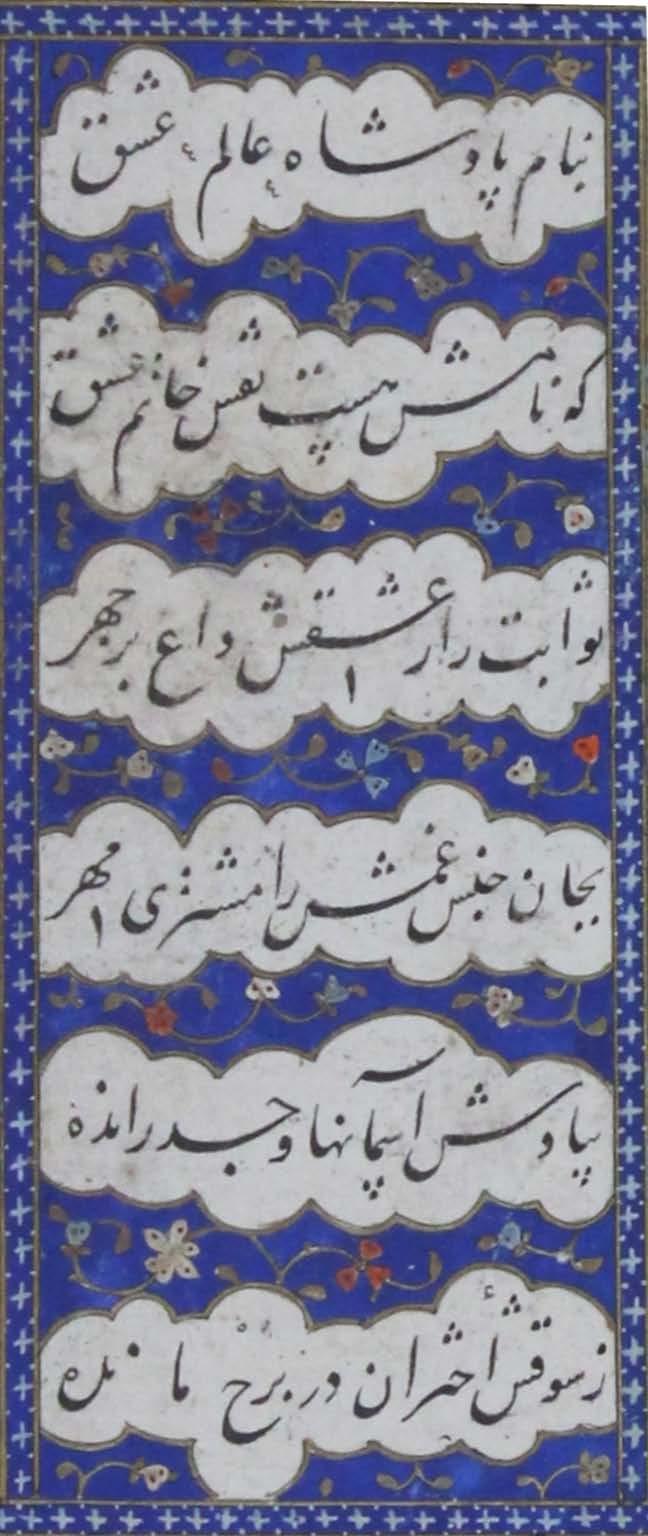 بنام پادشاه عالم عشق
که نامش هست نقش خاتم عشق
ثوابت را ز عشقش داغ بر چهر
بجان جنس غمش را مشتری مهر
بیادش آسمانها وجد رانده
ز شوقش اختران در برج مانده